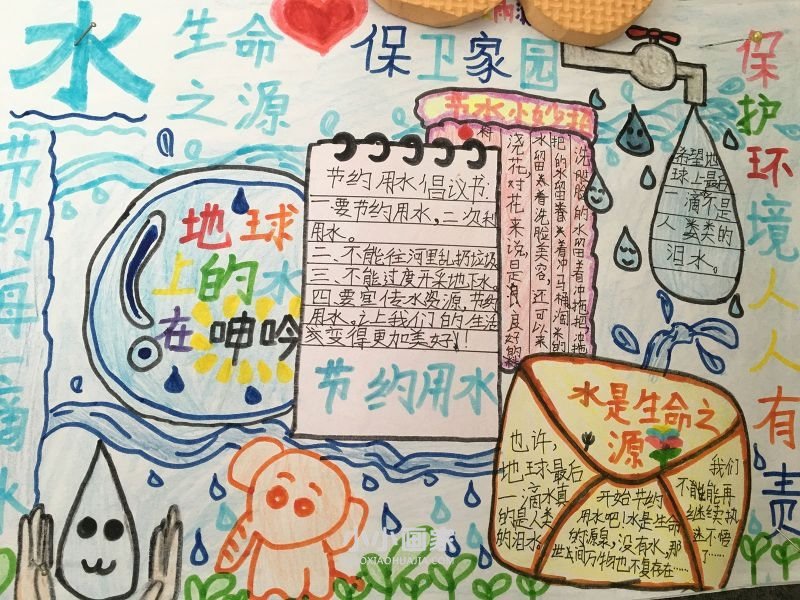 水
生命
之源
保卫家园
保护环境人人有责
节约每一滴水
地球
上的水
在呻吟
节约用水倡议书:
一要节约用水,二次利
用水。
二、不能往河里乱扔垃圾
三、不能过度开采地下水
四要宣传水资源,节约
用水,让我们的生活
变得更加美好!
节约用水
节水小妙招
洗脸的水留着冲拖把,冲拖
把的水留着
水留着洗脸美容,还可以来
浇花,对花来说,是
希望地
球上最后
一滴不是
人类的
泪水。
水是生命之
源
也许,
地球最后
一滴水真
的是人类
的泪水
开始节约
用水吧!水是生命
的源泉,没有水,那
世上间万物也不复存在……
我们
不能能再
继续执
迷不悟
了……
小小画家
XIAOXIAOHUAJIA.COM